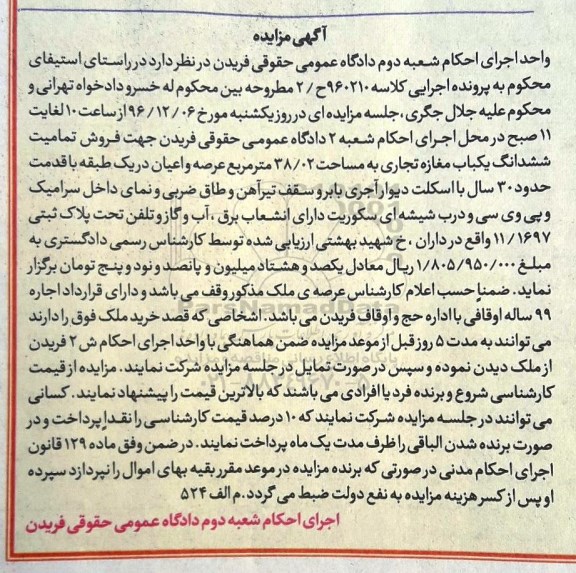 آگهی مزایده
واحد اجرای احکام شعبه دوم دادگاه عمومی حقوقی فریدن در نظر دارد در راستای استیفای
محکوم به پرونده اجرایی کلاسه ۹۶۰۲۱۰ح/۲ مطروحه بین محکوم له خسرو دادخواه تهرانی و
محکوم علیه جلال جگری،جلسه مزایده ای در روز یکشنبه مورخ ۹۶/۱۲/۰۶ از ساعت ۱۰ لغایت
۱۱ صبح در محل اجرای احکام شعبه ۲ دادگاه عمومی حقوقی فریدن جهت فروش تمامیت
ششدانگ یکباب مغازه تجاری به مساحت ۳۸/۰۲ مترمربع عرصه و اعیان در یک طبقه با قدمت
حدود ۳۰ سال با اسکلت دیوار آجری بابر و سقف تیرآهن و طاق ضربی و نمای داخل سرامیک
و پی وی سی و درب شیشه ای سکوریت دارای انشعاب برق ، آب و گاز و تلفن تحت پلاک ثبتی
۱۱/۱۶۹۷ واقع در داران ، خ شهید بهشتی ارزیابی شده توسط کارشناس رسمی دادگستری به
مبلغ ۱/۸۰۵/۹۵۰/۰۰۰ ریال معادل یکصد و هشتاد میلیون و پانصد و نود و پنج تومان برگزار
نماید. ضمناً حسب اعلام کارشناس عرصه ی ملک مذکور وقف می باشد و دارای قرارداد اجاره
۹۹ ساله اوقافی با اداره حج و اوقاف فریدن می باشد. اشخاصی که قصد خرید ملک فوق را دارند
می توانند به مدت ۵ روز قبل از موعد مزایده ضمن هماهنگی با واحد اجرای احکام ش ۲ فریدن
از ملک دیدن نموده و سپس در صورت تمایل در جلسه مزایده شرکت نمایند. مزایده از قیمت
کارشناسی شروع و برنده فرد یا افرادی می باشند که بالاترین قیمت را پیشنهاد نمایند. کسانی
می توانند در جلسه مزایده شرکت نمایند که ۱۰ درصد قیمت کارشناسی را نقداً پرداخت و در
صورت برنده شدن الباقی را ظرف مدت یک ماه پرداخت نمایند. در ضمن وفق ماده ۱۲۹ قانون
اجرای احکام مدنی در صورتی که برنده مزایده در موعد مقرر بقیه بهای اموال را نپردازد سپرده
او پس از کسر هزینه مزایده به نفع دولت ضبط می گردد.م الف ۵۲۴
اجرای احکام شعبه دوم دادگاه عمومی حقوقی فریدن